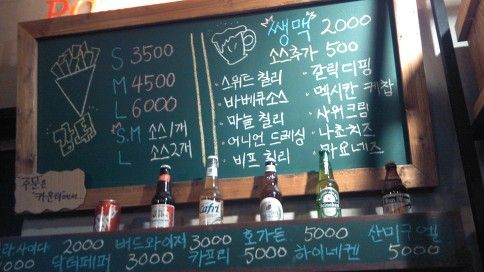 감튀
S 3500
M 4500
L 6000
S.M 소스1개
L 소스2개
쌩맥 2000
소스추가 500
· 스위트 칠리
· 바베큐소스
· 마늘 칠리
· 어니언 드레싱
· 비프 칠리
· 갈릭디핑
· 멕시칸 케찹
· 사워크림
· 나쵸치즈
· 마요네즈
주문은
카운터에서...
라 사이다 2000 버드와이저 3000 호가든 5000 산미구엘
00 닥터페퍼 3000 카프리 5000 하이네켄 5000